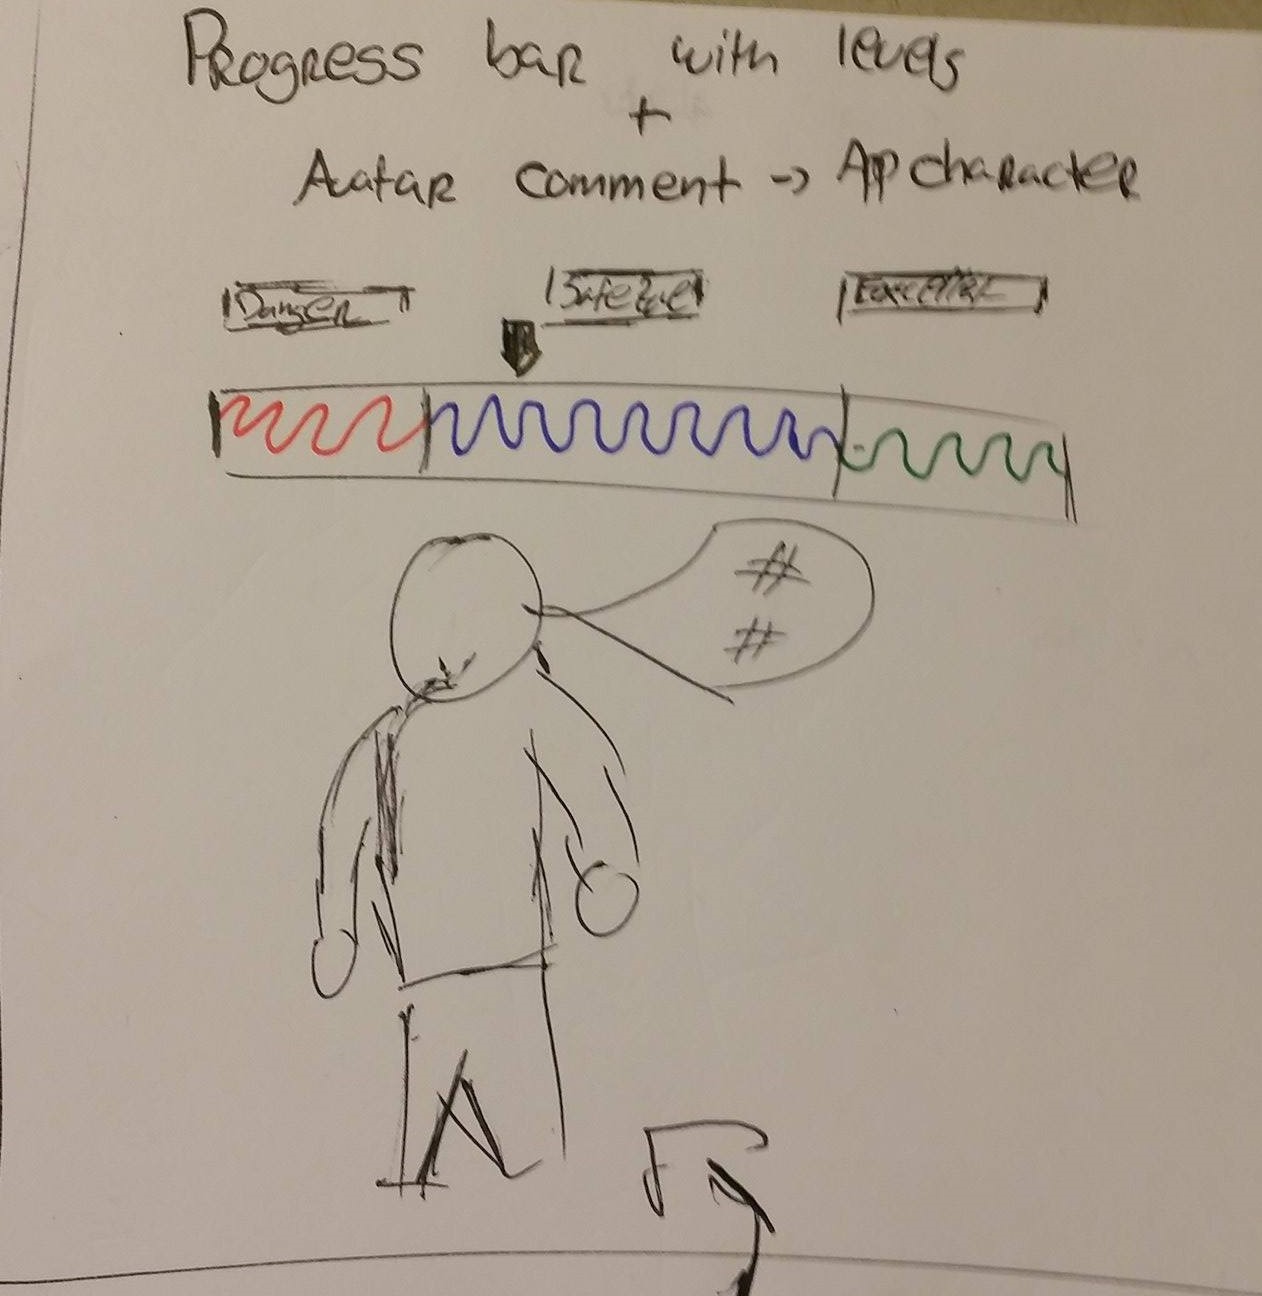 Progress bar with levels
+
Avatar comment -> App character
Danger Safe Zone Excellent
#
#